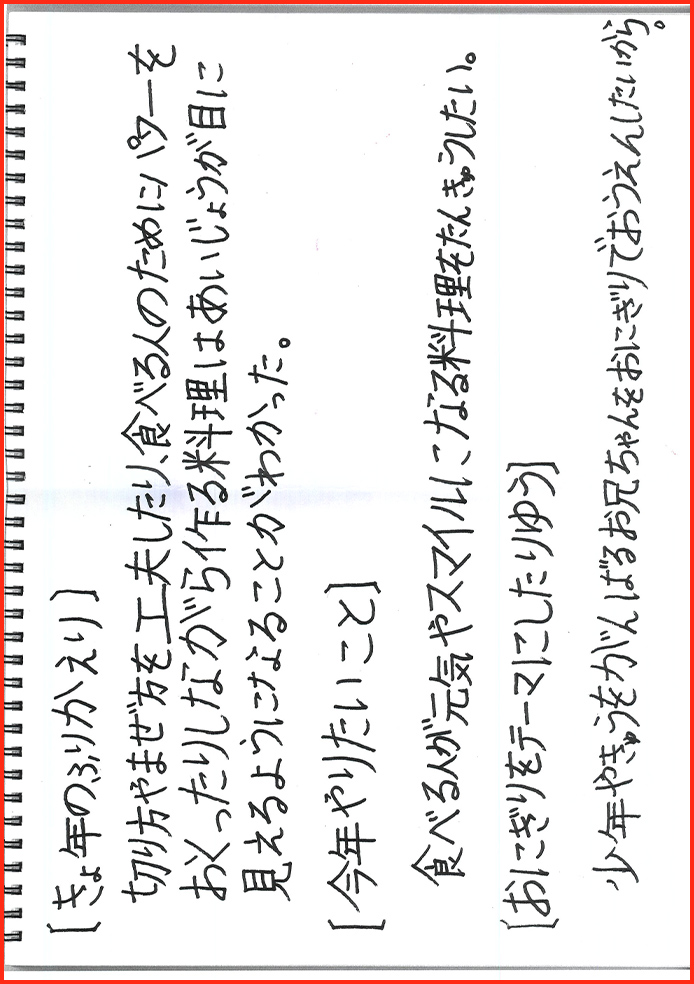 [きょ年のふりかえり]
切り方やまぜ方を工夫したり、食べる人のためにパワーを
おくったりしながら作る料理はあいじょうが目に
見えるようになることがわかった。
[今年やりたいこと]
食べる人が元気やスマイルになる料理をたんきゅうしたい。
[おにぎりをテーマにしたりゆう]
少年やきゅうをがんばるお兄ちゃんをおにぎりでおうえんしたいから。